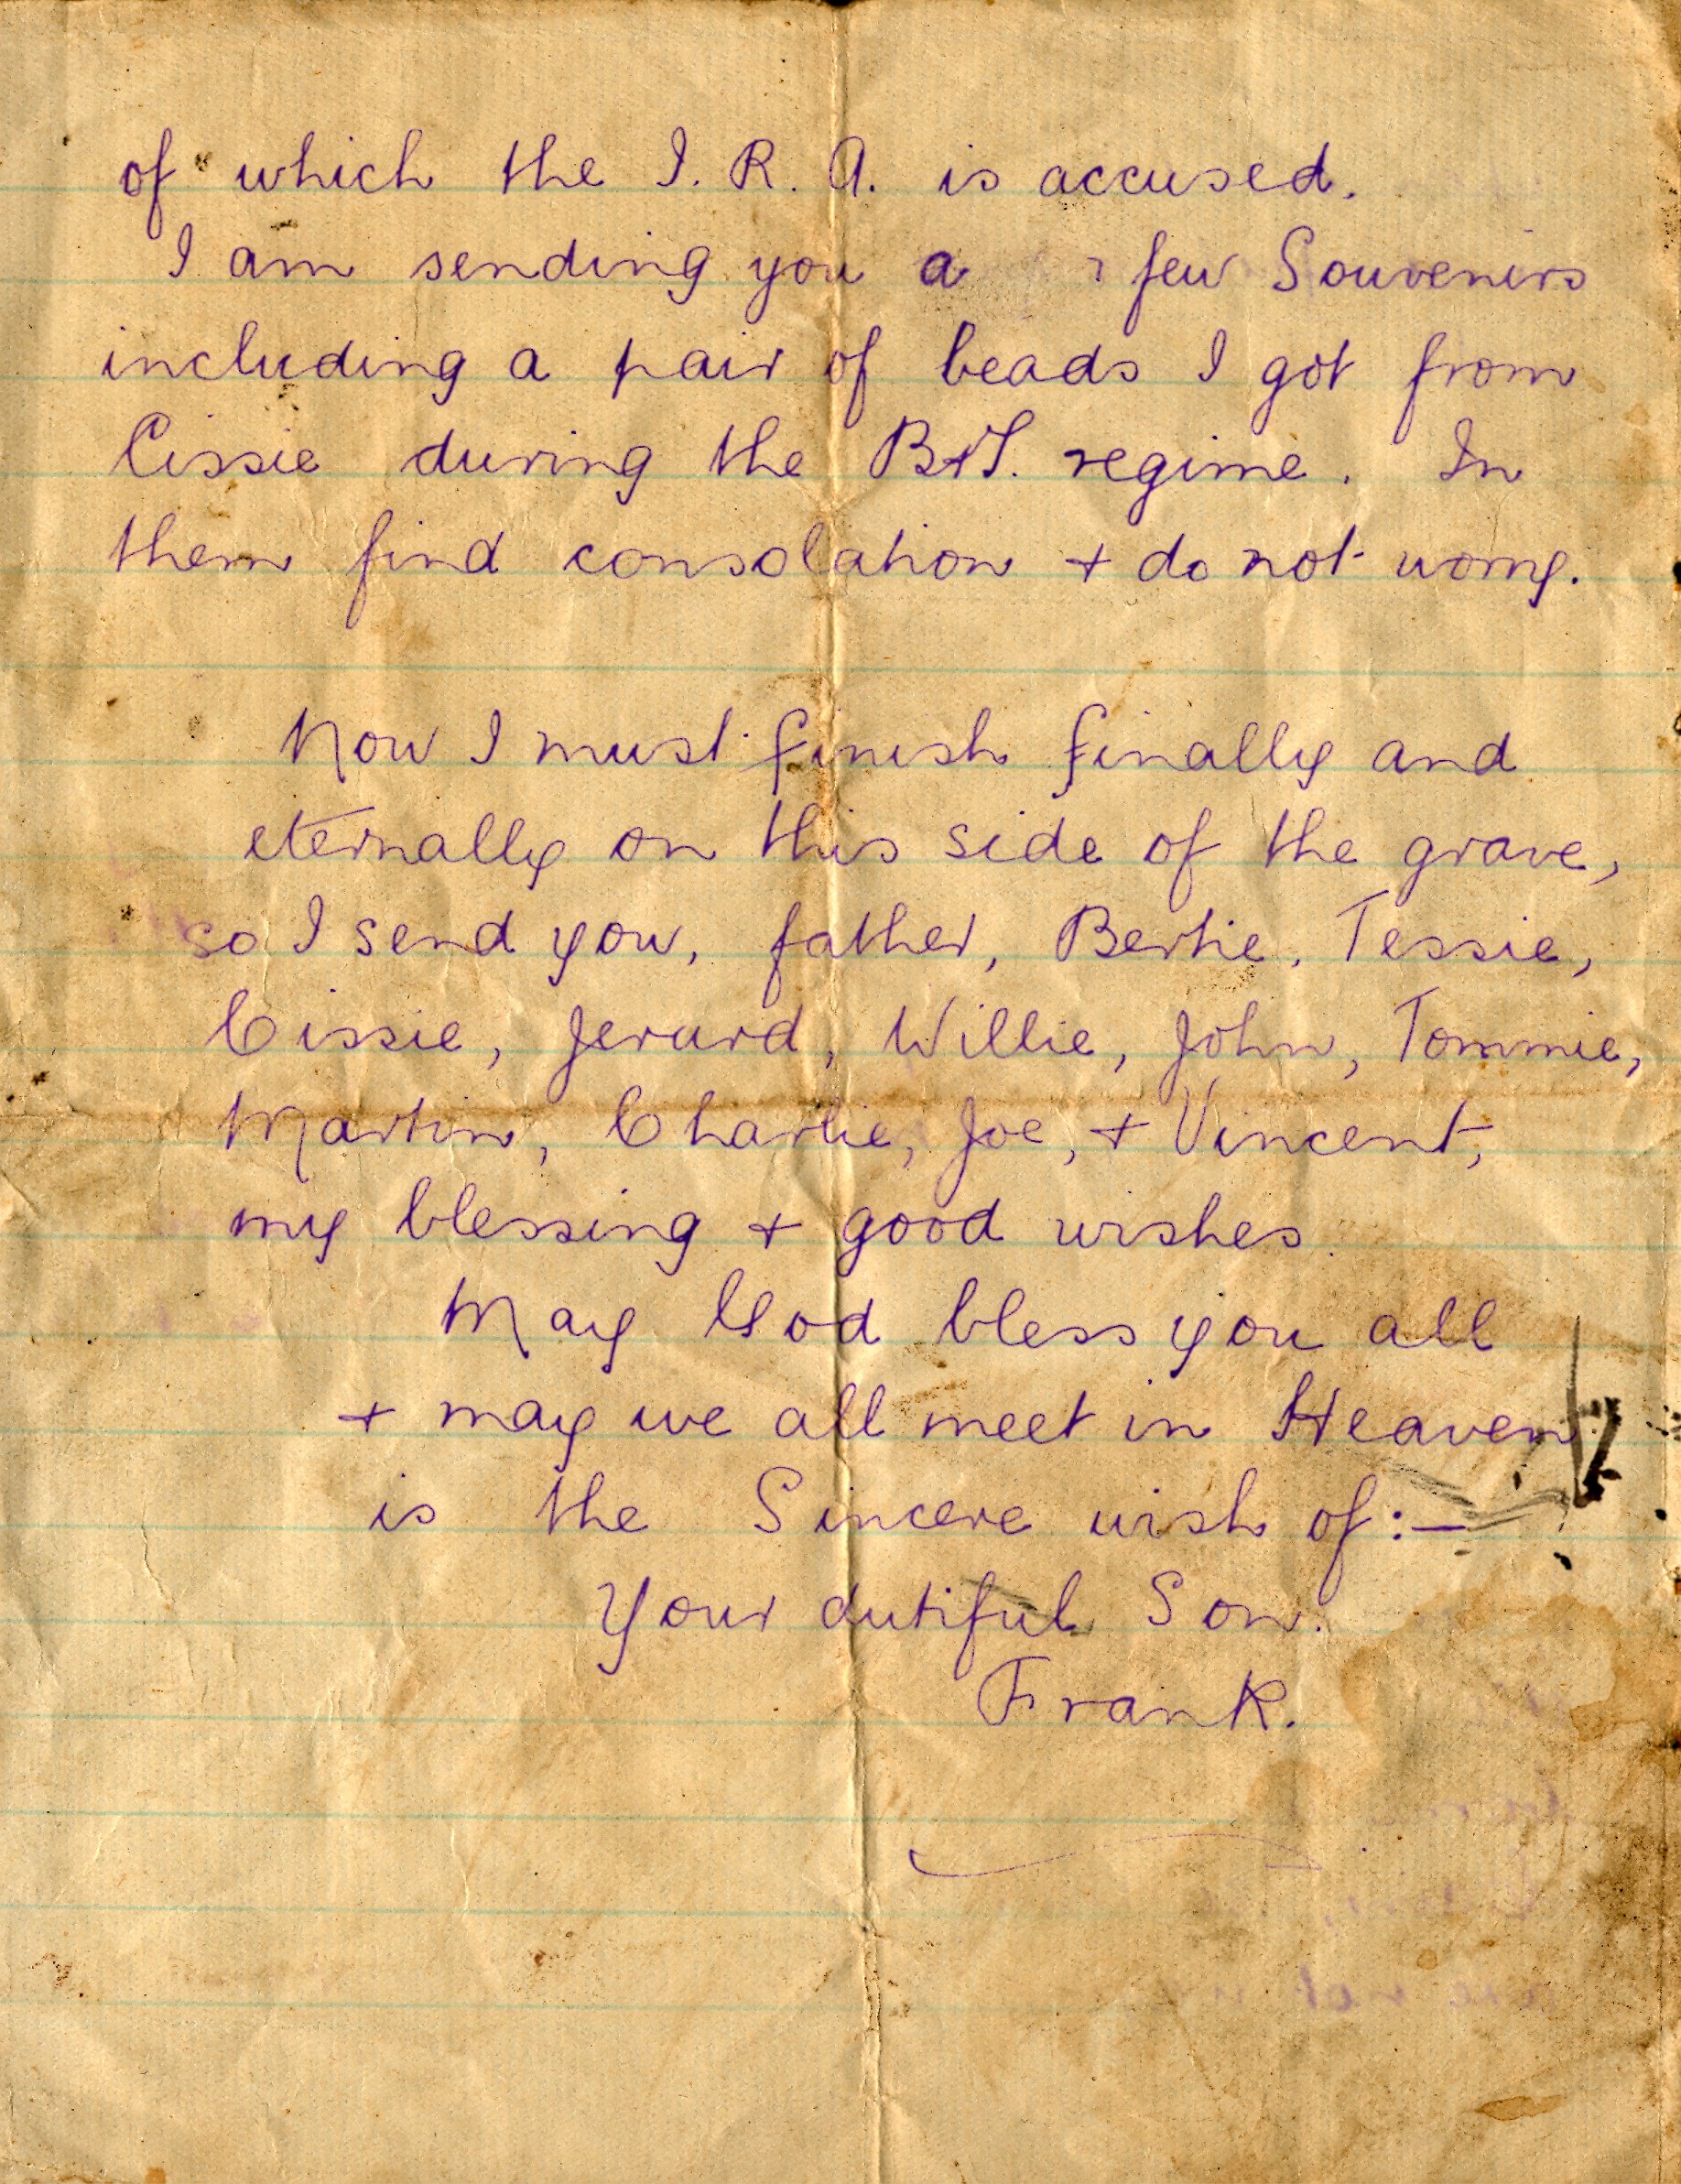 of which the I. R. A. is accused.
I am sending you a few Souvenirs
including a pair of beads I got from
Cissie during the B+T. regime. In
them find consolation + do not worry.
Now I must finish finally and
eternally on this side of the grave,
so I send you, father, Bertie, Tessie,
Cissie, Jerard, Willie, John, Tommie,
Martin, Charlie, Joe, + Vincent,
my blessing + good wishes.
May God bless you all
+ may we all meet in Heaven
is the Sincere wish of:—
Your dutiful Son.
Frank.